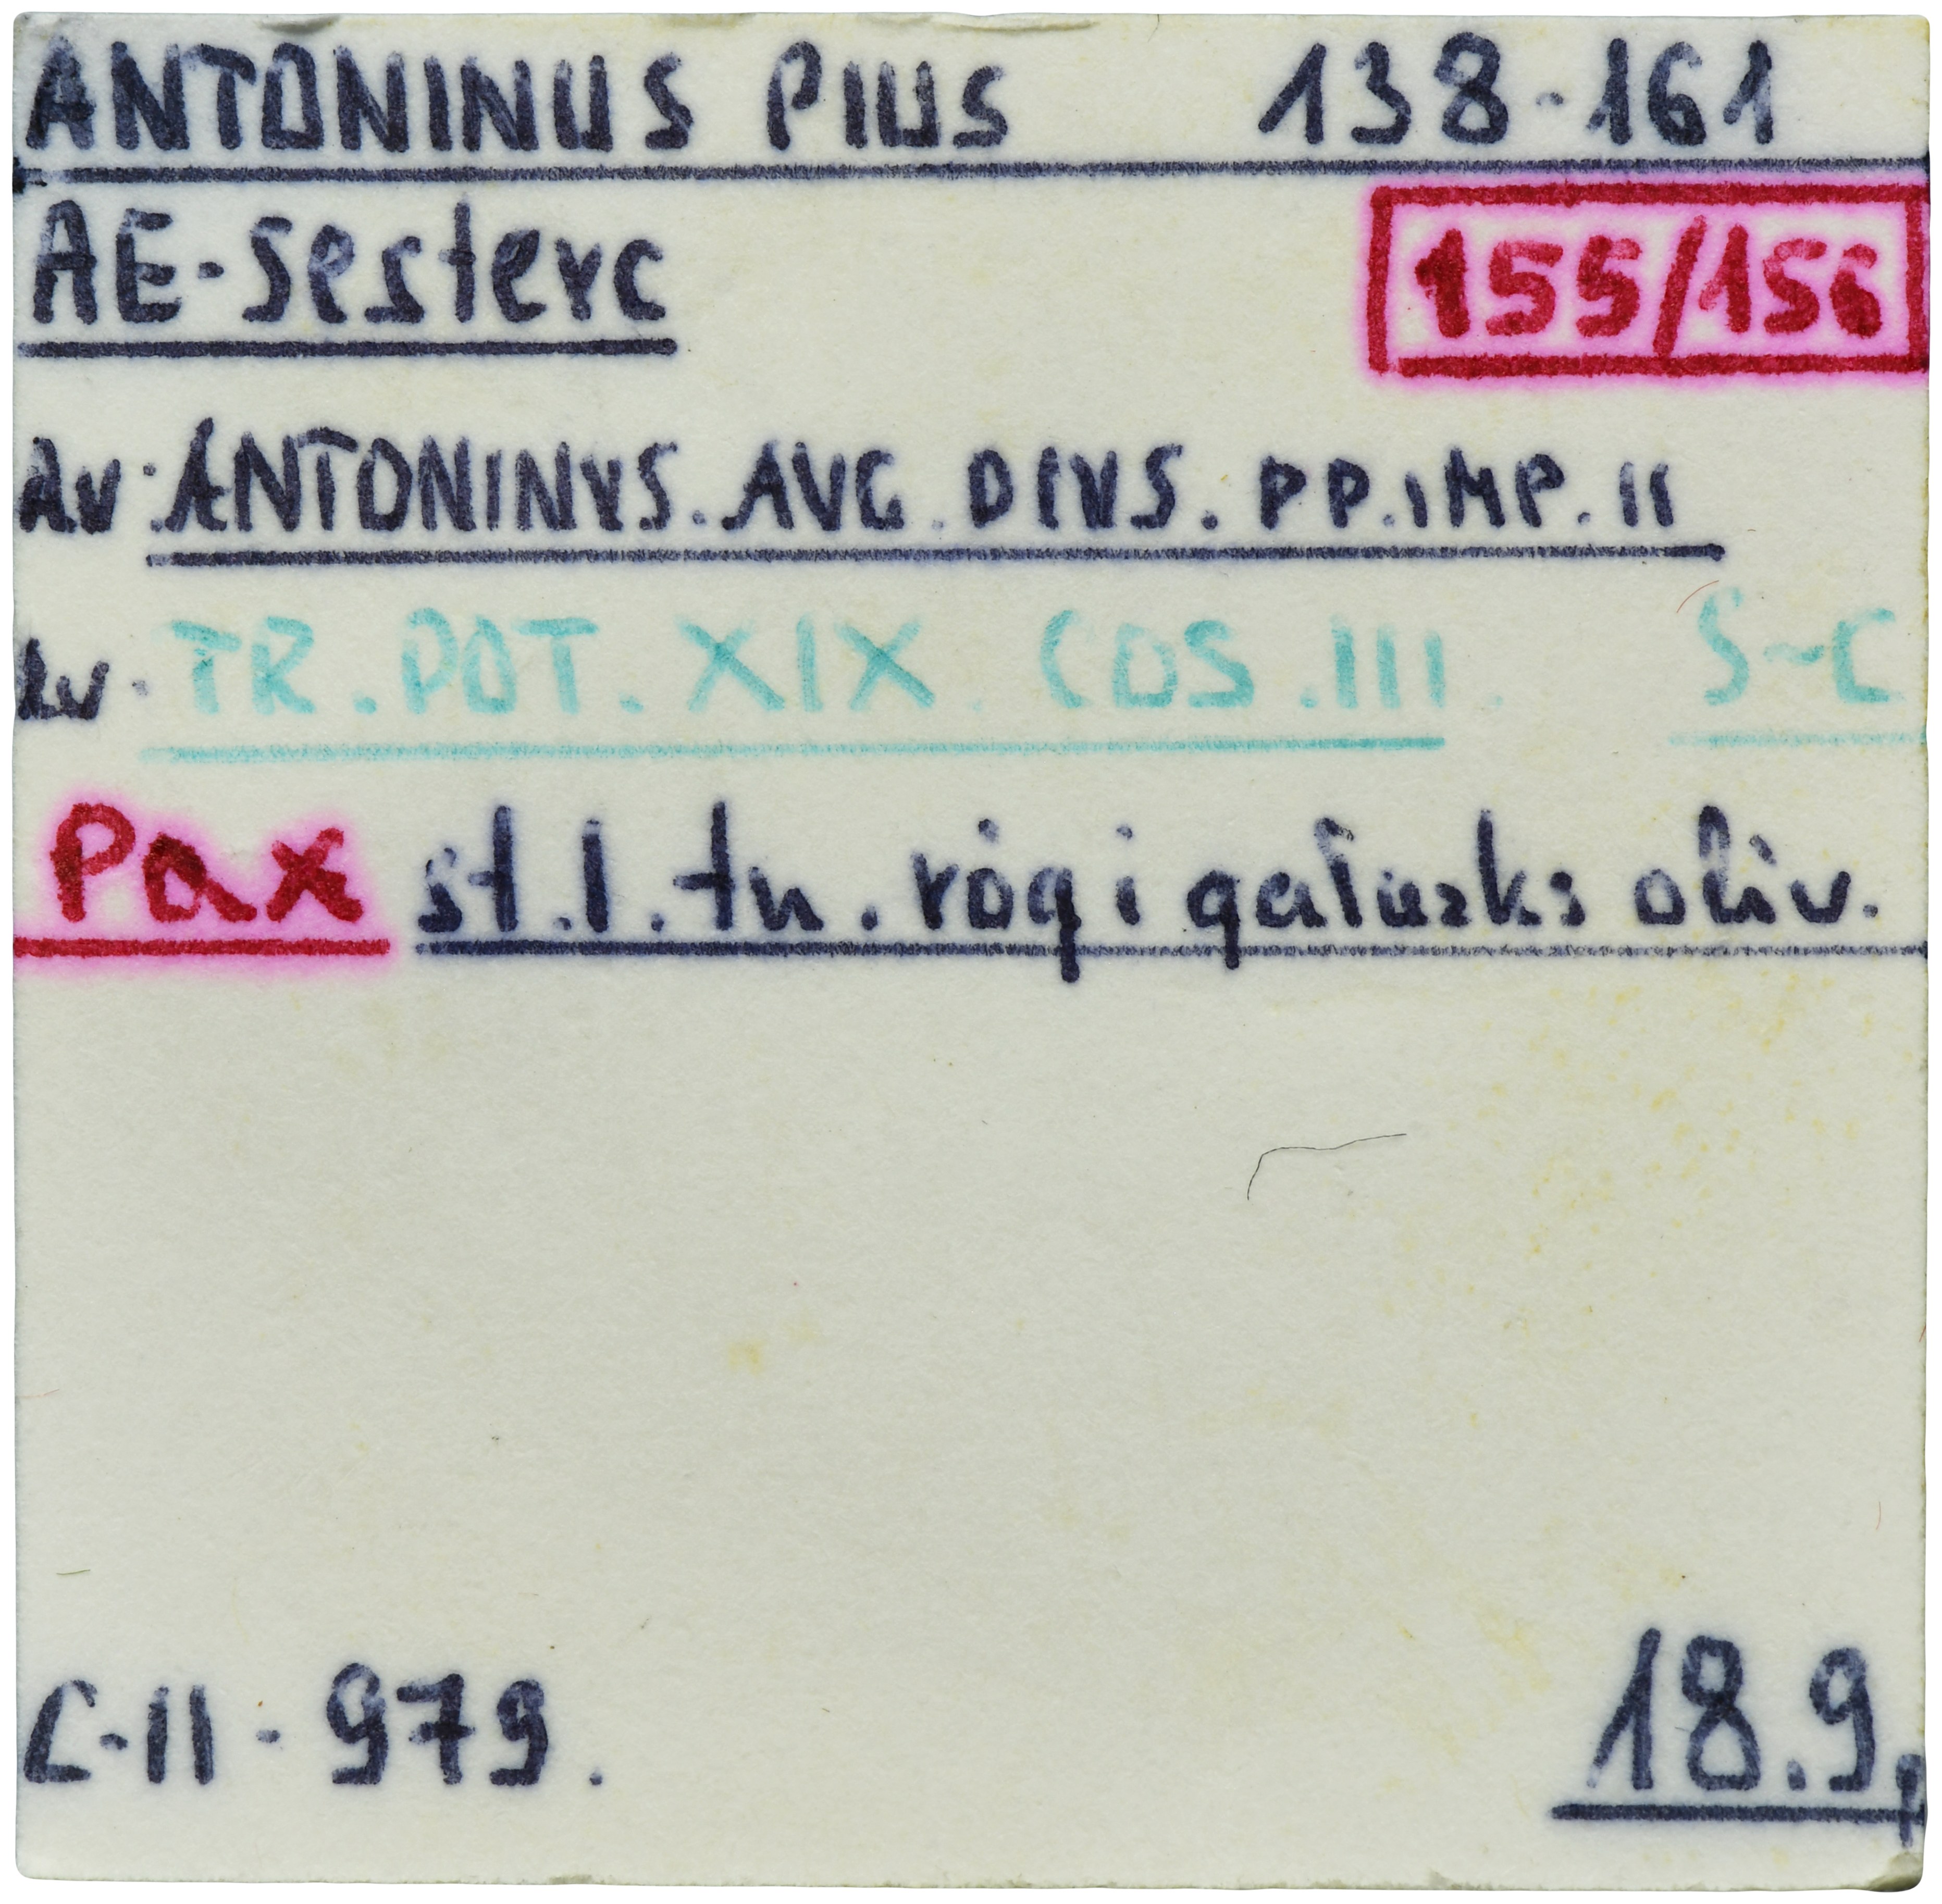 ANTONINUS PIUS 138-161
AE-Sesterc 155/156
Av. ANTONINVS. AVG. PIVS. PP. IMP. II
Rv. TR. POT. XIX. COS. III. S~C
Pax st. l. tn. róg i gałązkę oliw.
C-II-979.
18.9